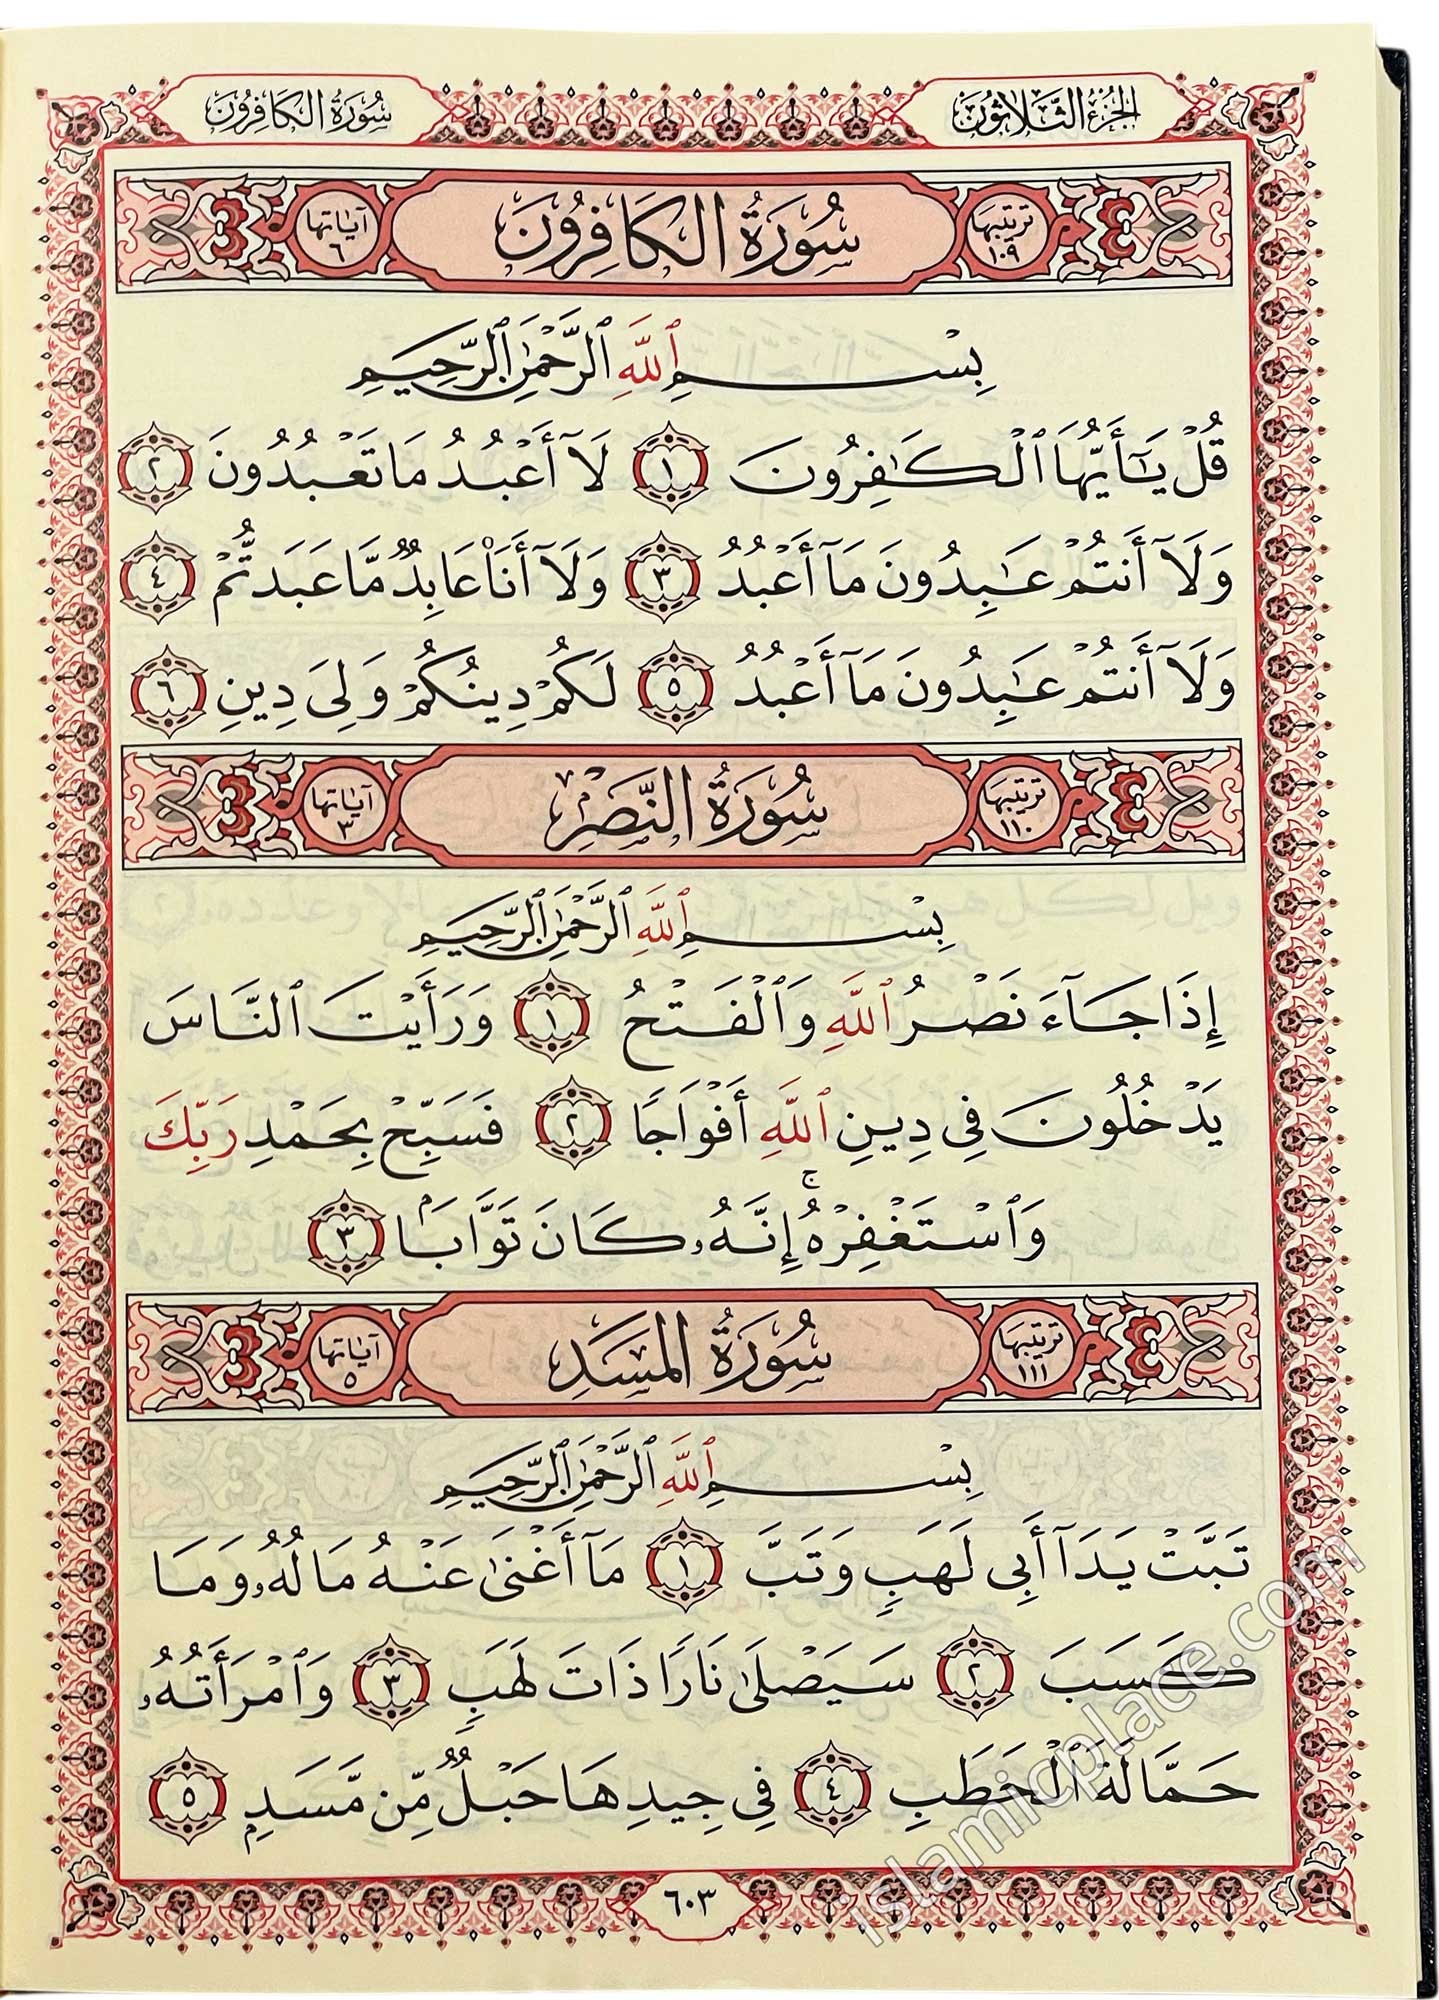 الجزء الثلاثون
سورة الكافرون
ترتيبها ١٠٩
سُورَةُ الكَافِرُونَ
آياتها ٦
بِسْمِ ٱللَّهِ ٱلرَّحْمَٰنِ ٱلرَّحِيمِ
قُلْ يَٰٓأَيُّهَا ٱلْكَٰفِرُونَ ١ لَآ أَعْبُدُ مَا تَعْبُدُونَ ٢
وَلَآ أَنتُمْ عَٰبِدُونَ مَآ أَعْبُدُ ٣ وَلَآ أَنَا۠ عَابِدٌ مَّا عَبَدتُّمْ ٤
وَلَآ أَنتُمْ عَٰبِدُونَ مَآ أَعْبُدُ ٥ لَكُمْ دِينُكُمْ وَلِىَ دِينِ ٦
ترتيبها ١١٠
سُورَةُ النَّصْرِ
آياتها ٣
بِسْمِ ٱللَّهِ ٱلرَّحْمَٰنِ ٱلرَّحِيمِ
إِذَا جَآءَ نَصْرُ ٱللَّهِ وَٱلْفَتْحُ ١ وَرَأَيْتَ ٱلنَّاسَ
يَدْخُلُونَ فِى دِينِ ٱللَّهِ أَفْوَاجًا ٢ فَسَبِّحْ بِحَمْدِ رَبِّكَ
وَٱسْتَغْفِرْهُ ۚ إِنَّهُۥ كَانَ تَوَّابَۢا ٣
ترتيبها ١١١
سُورَةُ المَسَدِ
آياتها ٥
بِسْمِ ٱللَّهِ ٱلرَّحْمَٰنِ ٱلرَّحِيمِ
تَبَّتْ يَدَآ أَبِى لَهَبٍ وَتَبَّ ١ مَآ أَغْنَىٰ عَنْهُ مَالُهُۥ وَمَا
كَسَبَ ٢ سَيَصْلَىٰ نَارًا ذَاتَ لَهَبٍ ٣ وَٱمْرَأَتُهُۥ
حَمَّالَةَ ٱلْحَطَبِ ٤ فِى جِيدِهَا حَبْلٌ مِّن مَّسَدٍۭ ٥
٦٠٣
islamicplace.com